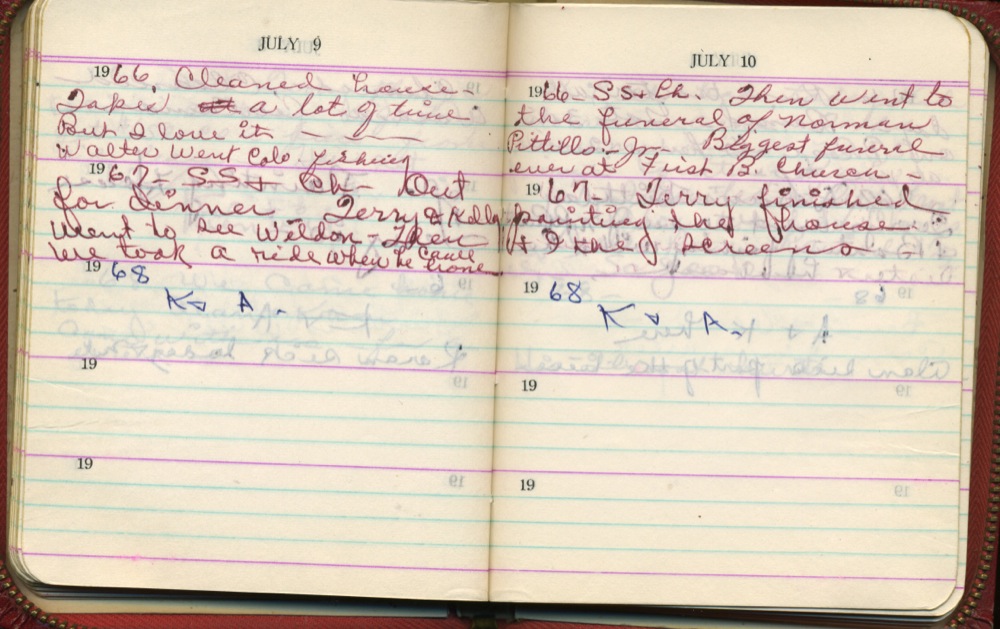 JULY 9
1966. Cleaned house -
Takes a lot of time
But I love it - -
Walter went Colo. fishing
1967 - S.S & Ch - Out
for dinner Terry &
went to see Weldon - Then
we took a ride when he came
home
1968
K & A -
19
19
JULY 10
1966 - S S & Ch. Then went to
the funeral of Norman
Pittillo - Jr - Biggest funeral
ever at First B. Church -
1967 - Terry finished
painting the house -
& I the screens -
1968
K & A -
19
19